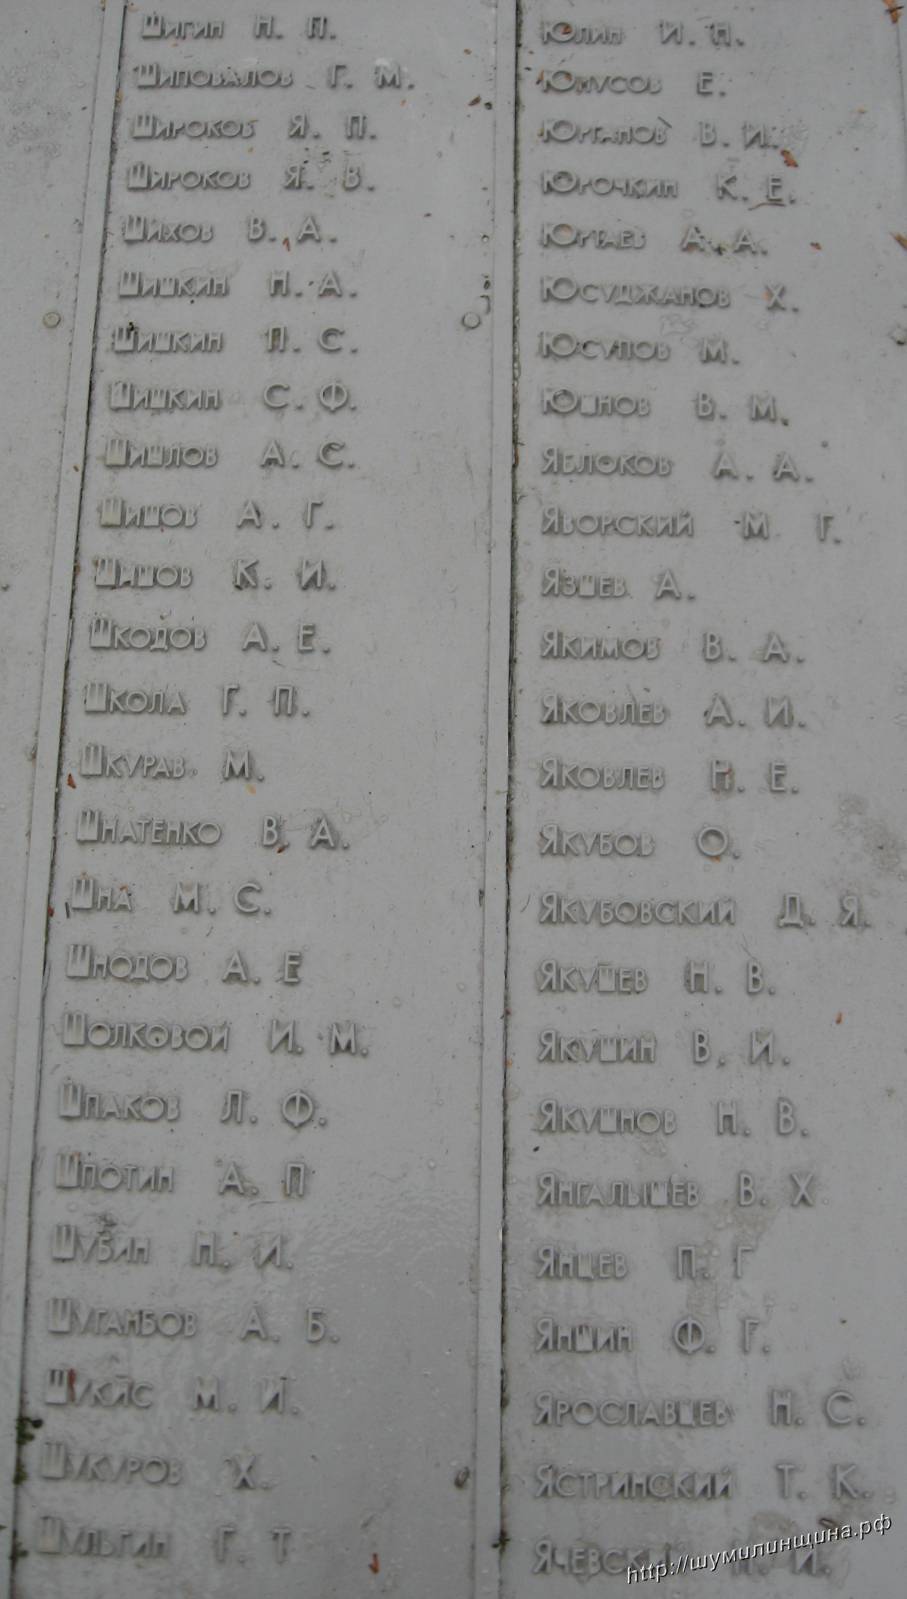 Шигин Н. П.
Шиповалов Г. М.
Широков Я. П.
Широков Я. В.
Шихов В. А.
Шишкин Н. А.
Шишкин П. С.
Шишкин С. Ф.
Шишлов А. С.
Шишов А. Г.
Шишов К. И.
Шкодов А. Е.
Школа Г. П.
Шкурав М.
Шнатенко В. А.
Шна М. С.
Шнодов А. Е
Шолковой И. М.
Шпаков Л. Ф.
Шпотин А. П
Шубин Н. И.
Шугамбов А. Б.
Шукис М. И.
Шукуров Х.
Шульгин Г. Т
Юлин И. Н.
Юмусов Е.
Юрганов В. И.
Юрочкин К. Е.
Юртаев А. А.
Юсуджанов Х.
Юсупов М.
Юшнов В. М.
Яблоков А. А.
Яворский М Г.
Язшев А.
Якимов В. А.
Яковлев А. И.
Яковлев Н. Е.
Якубов О.
Якубовский Д. Я.
Якушев Н. В.
Якушин В. И.
Якушнов Н. В.
Янгалышев В. Х
Янцев П. Г
Яншин Ф. Г.
Ярославцев Н. С.
Ястринский Т. К.
Ячевский Н. И.
http://шумилинщина.рф